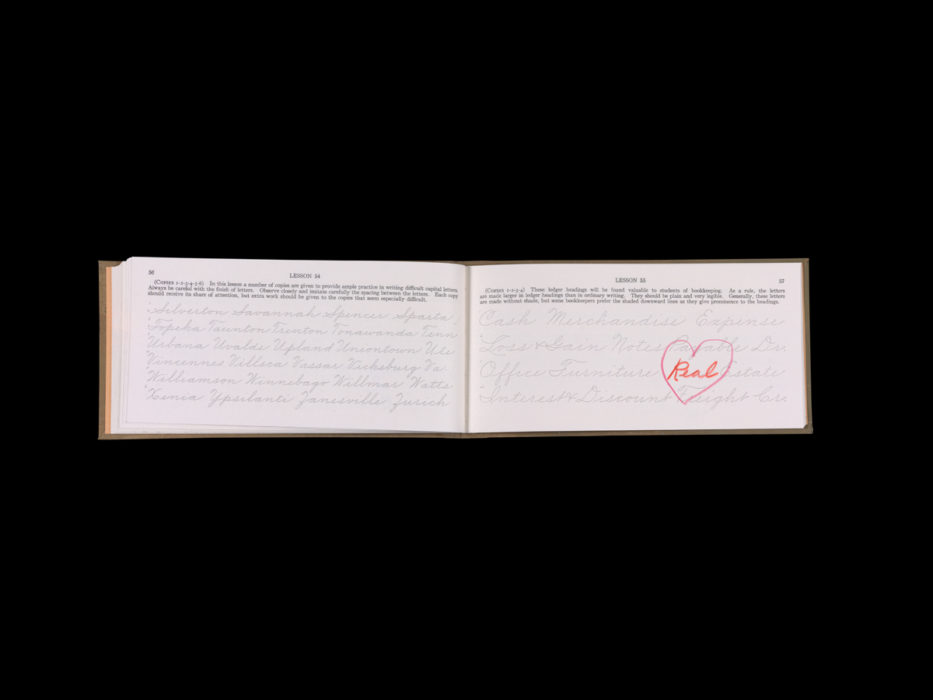 56
LESSON 54
(COPIES 1-2-3-4-5-6) In this lesson a number of copies are given to provide ample practice in writing difficult capital letters.
Always be careful with the finish of letters. Observe closely and imitate carefully the spacing between the letters. Each copy
should receive its share of attention, but extra work should be given to the copies that seem especially difficult.
Silverton Savannah Spencer Sparta
Topeka Taunton Trenton Tonawanda Tenn
Urbana Uvalde Upland Uniontown Ute
Vincennes Villisca Vassar Vicksburg Va.
Williamson Winnebago Willmar Watts
Xenia Ypsilanti Zanesville Zurich
LESSON 55
57
(COPIES 1-2-3-4) These ledger headings will be found valuable to students of bookkeeping. As a rule, the letters
are made larger in ledger headings than in ordinary writing. They should be plain and very legible. Generally, these letters
are made without shade, but some bookkeepers prefer the shaded downward lines as they give prominence to the headings.
Cash Merchandise Expense
Loss & Gain Notes Payable Dr.
Office Furniture Real Estate
Interest & Discount Freight Cr.